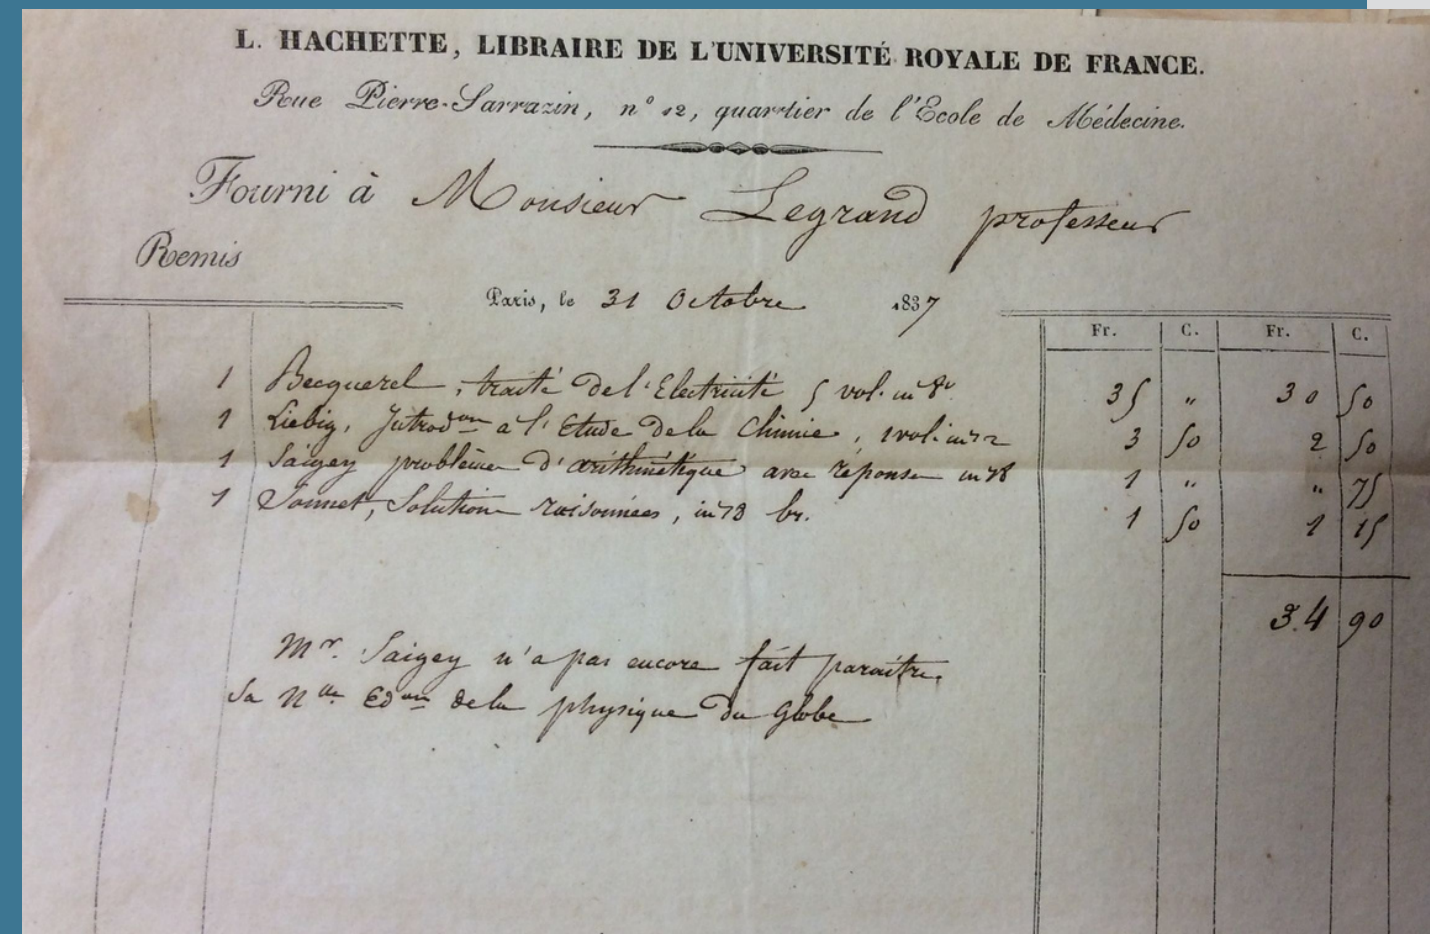 L. HACHETTE, LIBRAIRE DE L'UNIVERSITÉ ROYALE DE FRANCE.
Rue Pierre-Sarrazin, n° 12, quartier de l'Ecole de Médecine.
Fourni à Monsieur Legrand professeur
Remis
Paris, le 31 Octobre 1837
Fr. C. Fr. C.
1 Becquerel, traité de l'Electricité 5 vol. in 8° 35 " 30 50
1 Liebig, Introd^on a l'Etude de la Chimie, 1 vol. in 12 3 50 2 50
1 Saigey problèmes d'arithmétique avec réponses in 18 1 " " 75
1 Sonnet, Solutions raisonnées, in 18 br. 1 50 1 15
34 90
M^r. Saigey n'a pas encore fait paraitre
sa N^lle Ed^on de la physique du Globe